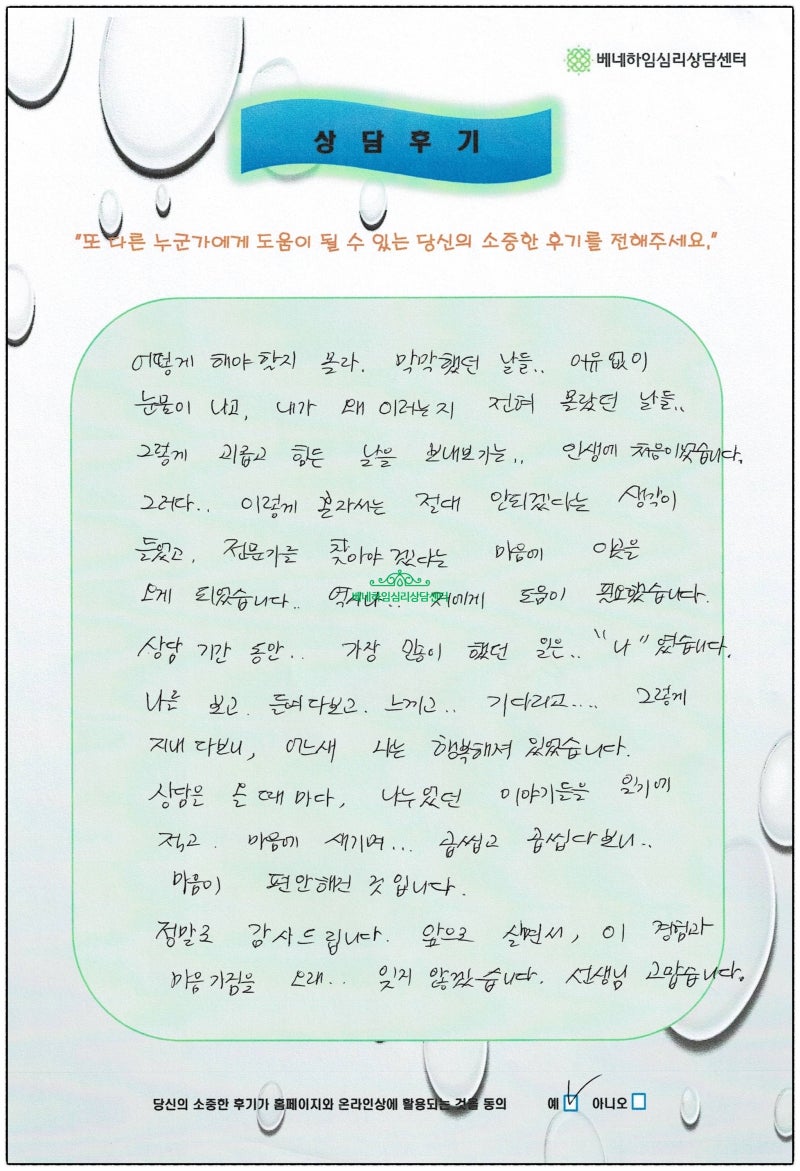 베네하임심리상담센터
상담후기
"또 다른 누군가에게 도움이 될 수 있는 당신의 소중한 후기를 전해주세요."
어떻게 해야 할지 몰라. 막막했던 날들.. 이유 없이
눈물이 나고, 내가 왜 이러는지 전혀 몰랐던 날들..
그렇게 괴롭고 힘든 날을 보내보기는.. 인생에 처음이었습니다.
그러다.. 이렇게 혼자서는 절대 안되겠다는 생각이
들었고, 전문가를 찾아야 겠다는 마음에 이곳을
오게 되었습니다.. 역시나.. 저에게 도움이 필요했습니다.
베네하임심리상담센터
상담 기간 동안.. 가장 많이 했던 일은.. "나" 였습니다.
나를 보고. 들여다보고. 느끼고.. 기다리고.... 그렇게
지내 다보니, 어느새 나는 행복해져 있었습니다.
상담을 올 때 마다, 나누었던 이야기들을 일기에
적고. 마음에 새기며... 곱씹고 곱씹다 보니..
마음이 편안해진 것 입니다.
정말로 감사드립니다. 앞으로 살면서, 이 경험과
마음가짐을 오래.. 잊지 않겠습니다. 선생님 고맙습니다.
당신의 소중한 후기가 홈페이지와 온라인상에 활용되는 것을 동의 예 아니오